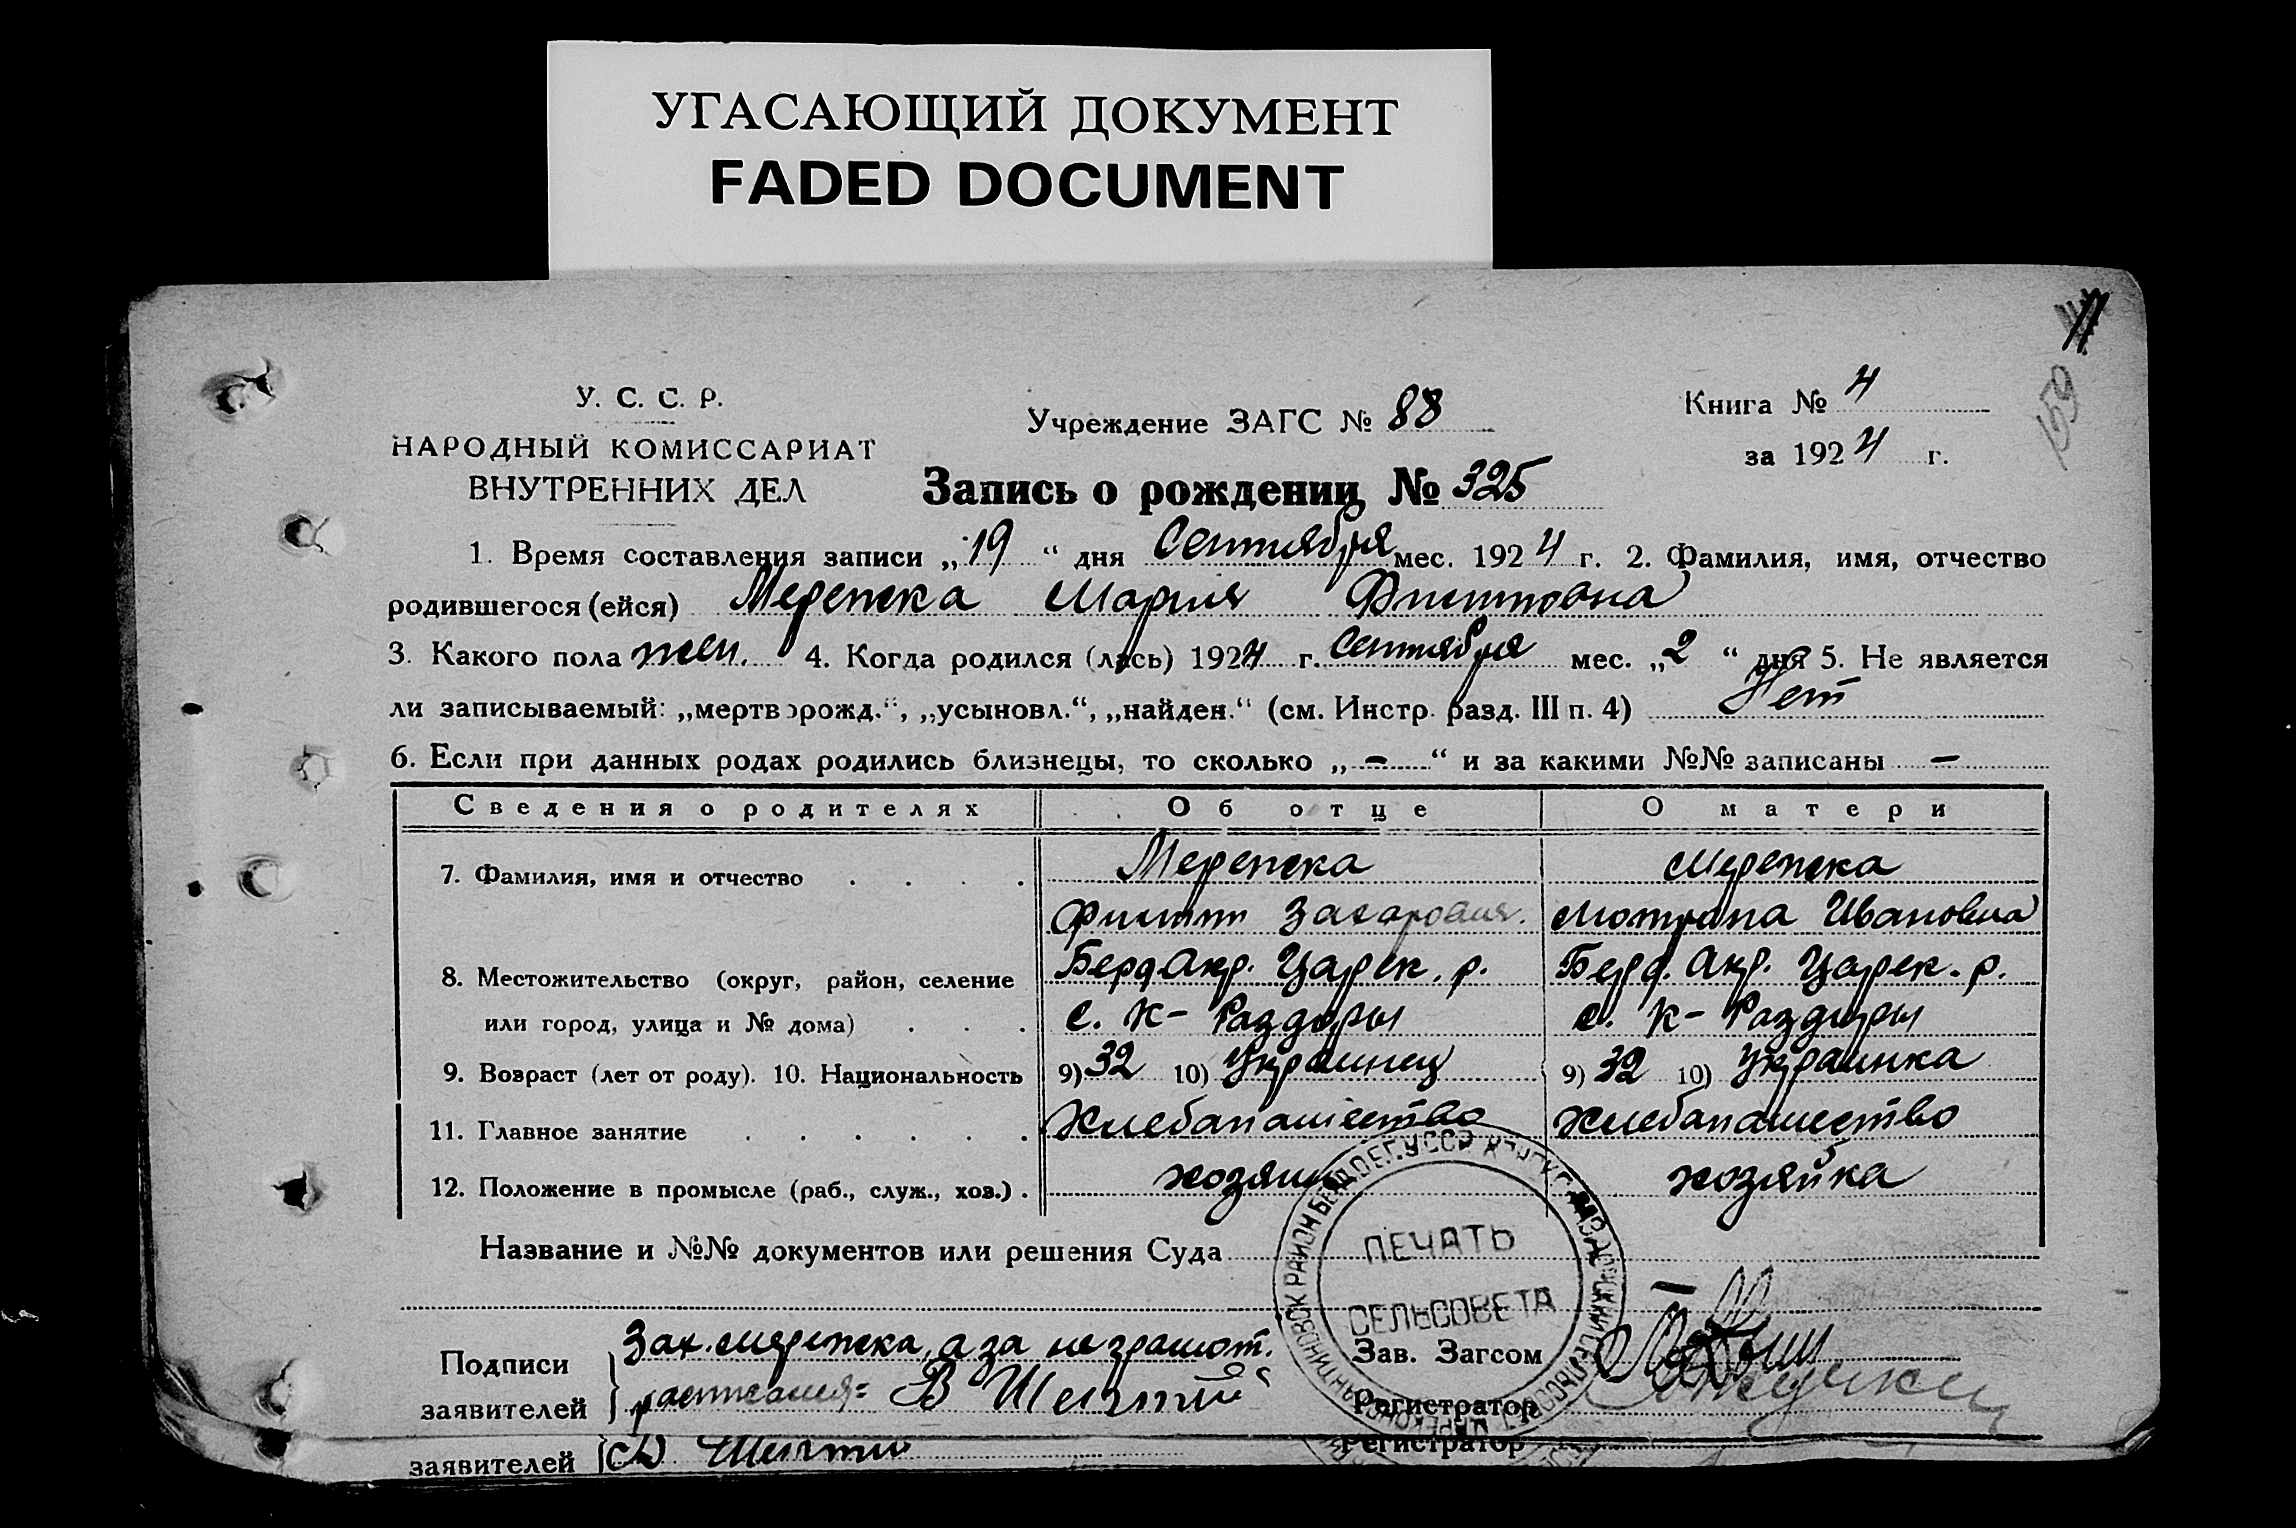 УГАСАЮЩИЙ ДОКУМЕНТ
FADED DOCUMENT
11
159
У. С. С. Р.
НАРОДНЫЙ КОМИССАРИАТ
ВНУТРЕННИХ ДЕЛ
Учреждение ЗАГС № 88
Книга № 4
за 1924 г.
Запись о рождении № 325
1. Время составления записи „19“ дня Сентября мес. 1924 г. 2. Фамилия, имя, отчество
родившегося (ейся) Мария
3. Какого пола жен. 4. Когда родился (лась) 1924 г. Сентября мес. „2“ дня 5. Не является
ли записываемый: „мертворожд.“, „усыновл.“, „найден.“ (см. Инстр. разд. III п. 4) Нет
6. Если при данных родах родились близнецы, то сколько „ — “ и за какими №№ записаны —
Сведения о родителях Об отце О матери
7. Фамилия, имя и отчество
Захарович Мотрона Ивановна
8. Местожительство (округ, район, селение Берд. Окр. Царек. р. Берд. Окр. Царек. р.
или город, улица и № дома) с. К- Раздоры с. К- Раздоры
9. Возраст (лет от роду). 10. Национальность 9) 32 10) Украинец 9) 32 10) Украинка
11. Главное занятие Хлебапашество Хлебапашество
12. Положение в промысле (раб., служ., хоз.) хозяин хозяйка
Название и №№ документов или решения Суда
ПЕЧАТЬ
СЕЛЬСОВЕТА
Подписи Зах. а за неграмот. Зав. Загсом
заявителей В Регистратор
заявителей Регистратор